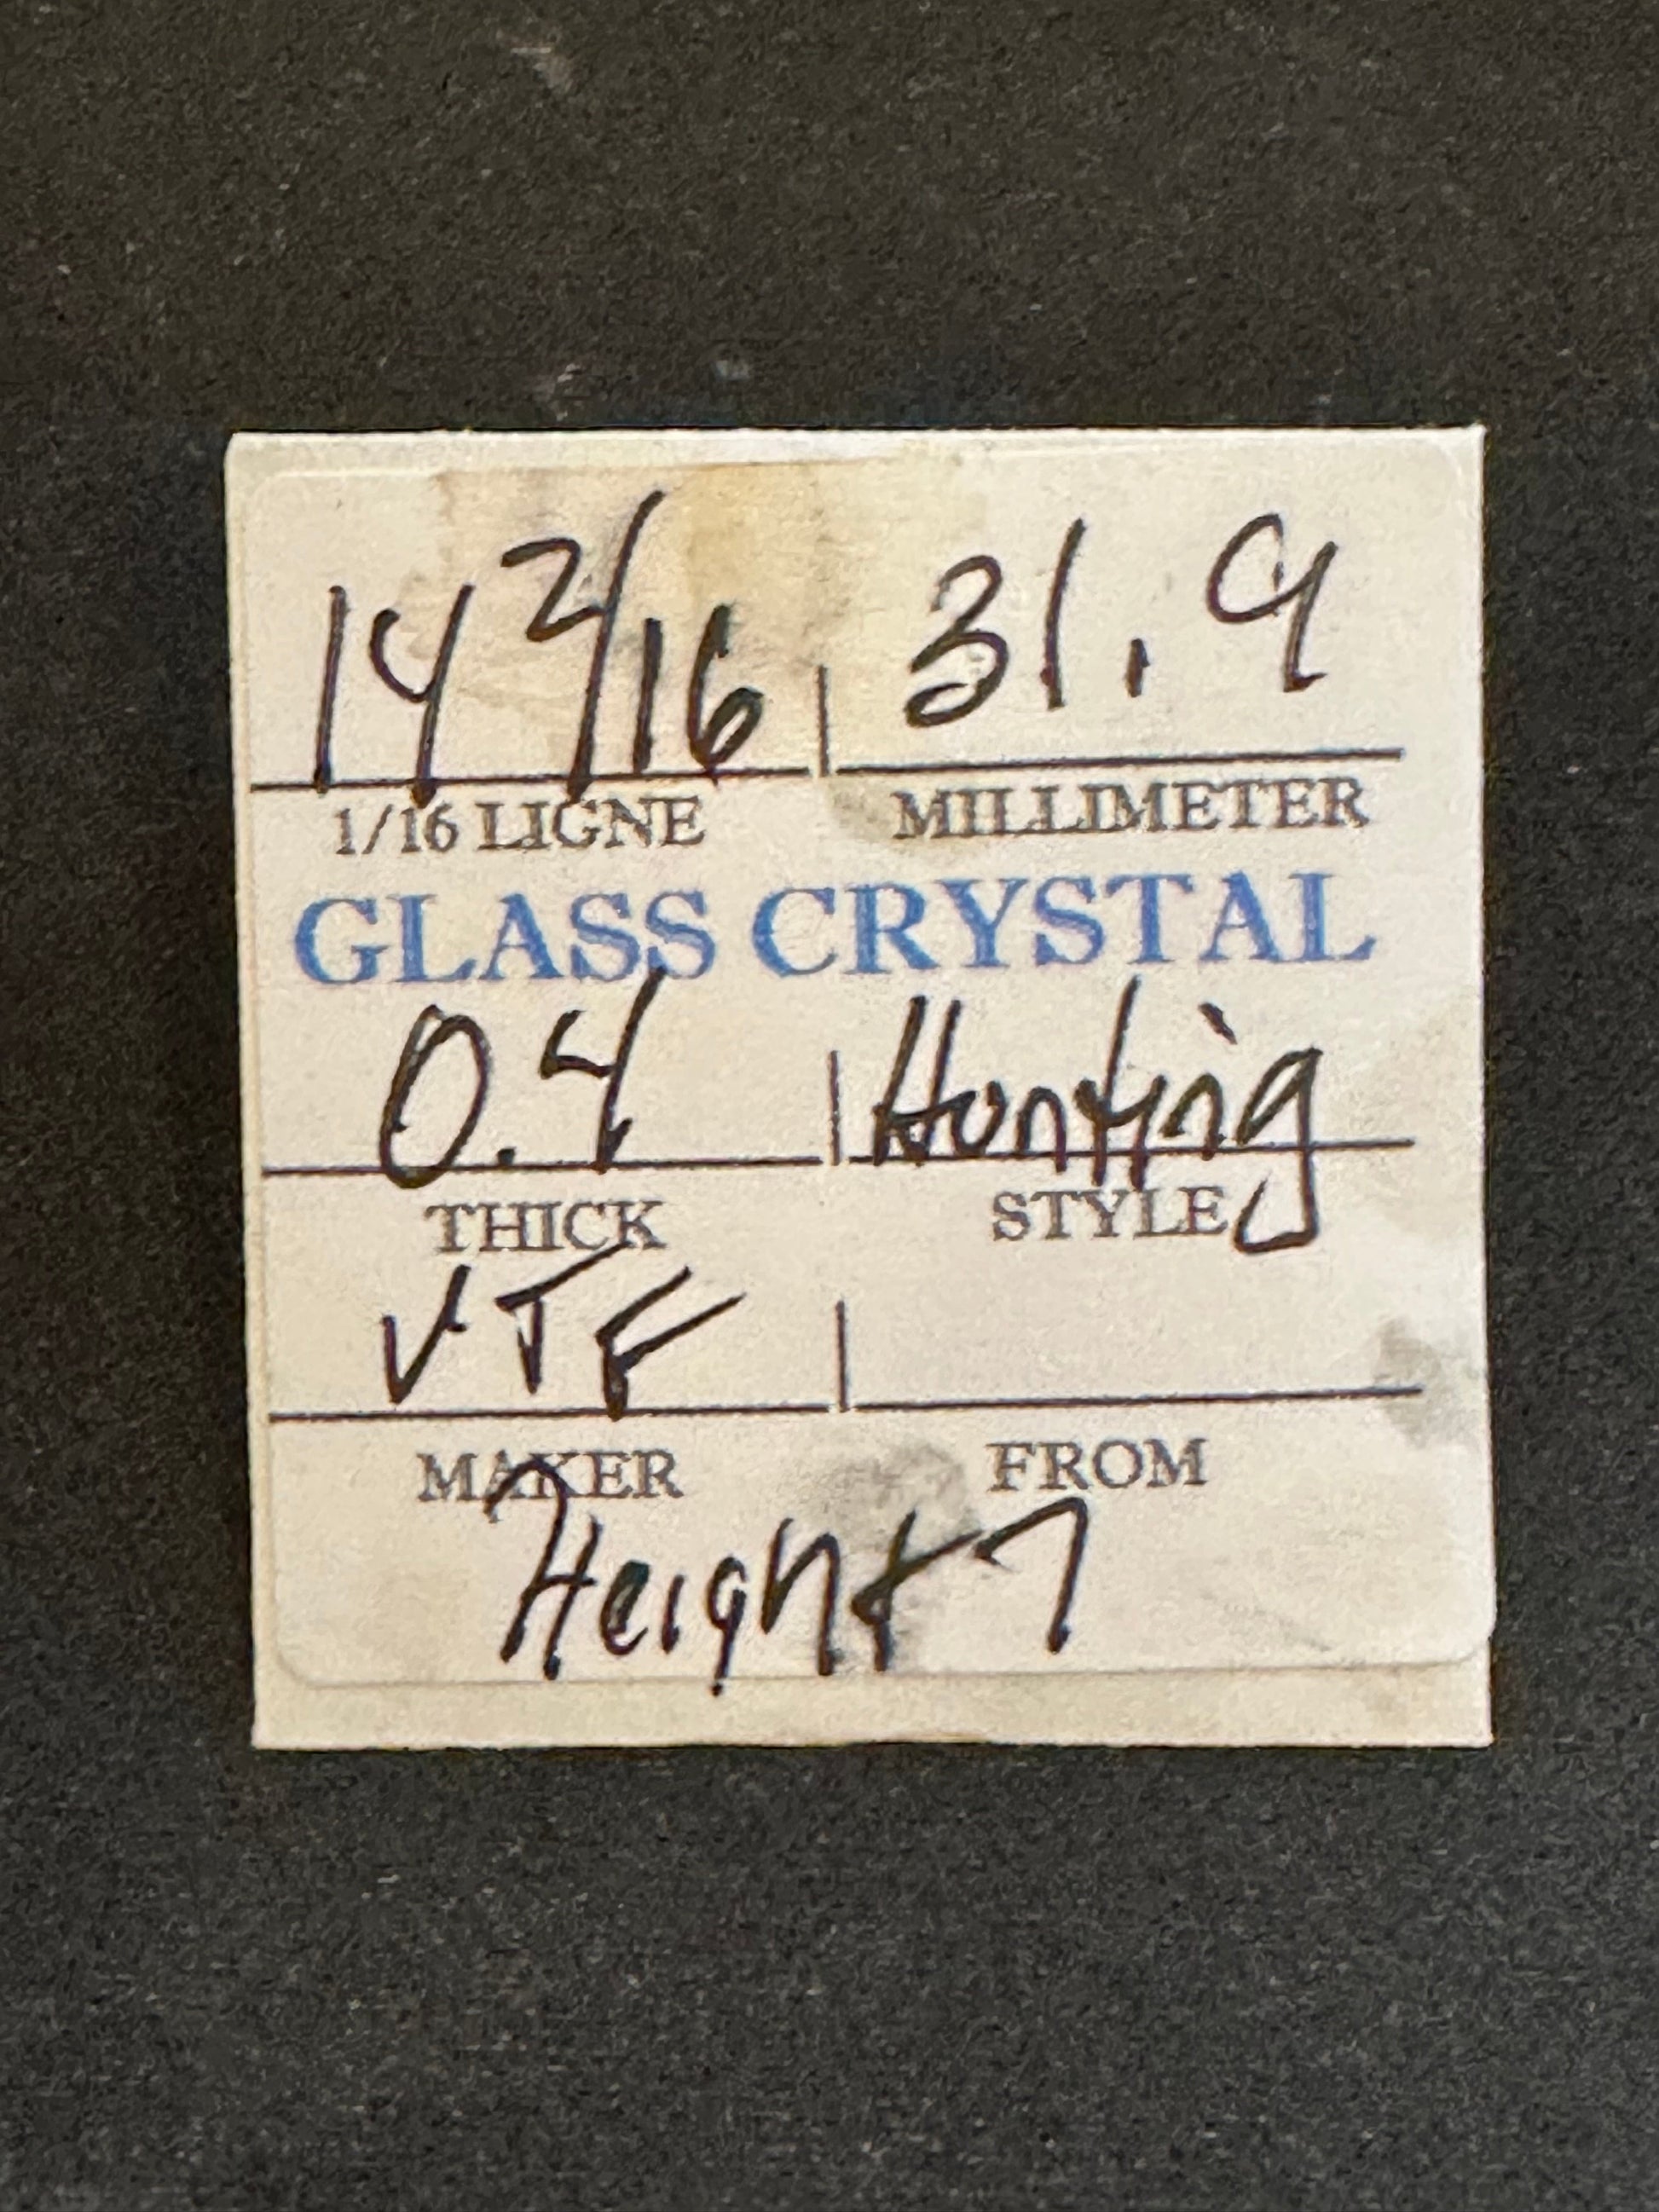 14 2/16 31.9
1/16 LIGNE MILLIMETER
GLASS CRYSTAL
0.4 Hunting
THICK STYLE
VTF
MAKER FROM
Height 7